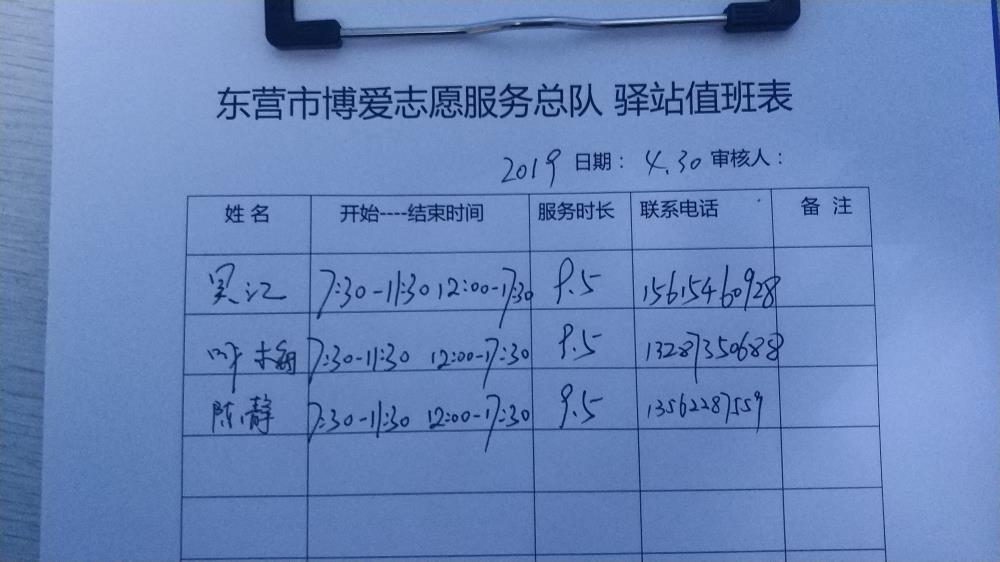 东营市博爱志愿服务总队 驿站值班表
2019 日期： 4.30 审核人：
姓名 开始----结束时间 服务时长 联系电话 备 注
吴江 7:30-11:30 12:00-17:30 9.5 15615460928
7:30-11:30 12:00-17:30 9.5 13287350688
陈静 7:30-11:30 12:00-17:30 9.5 13562287559